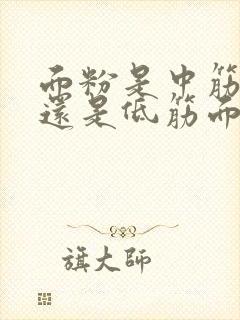 面粉是中筋
還是低筋面
旗大師